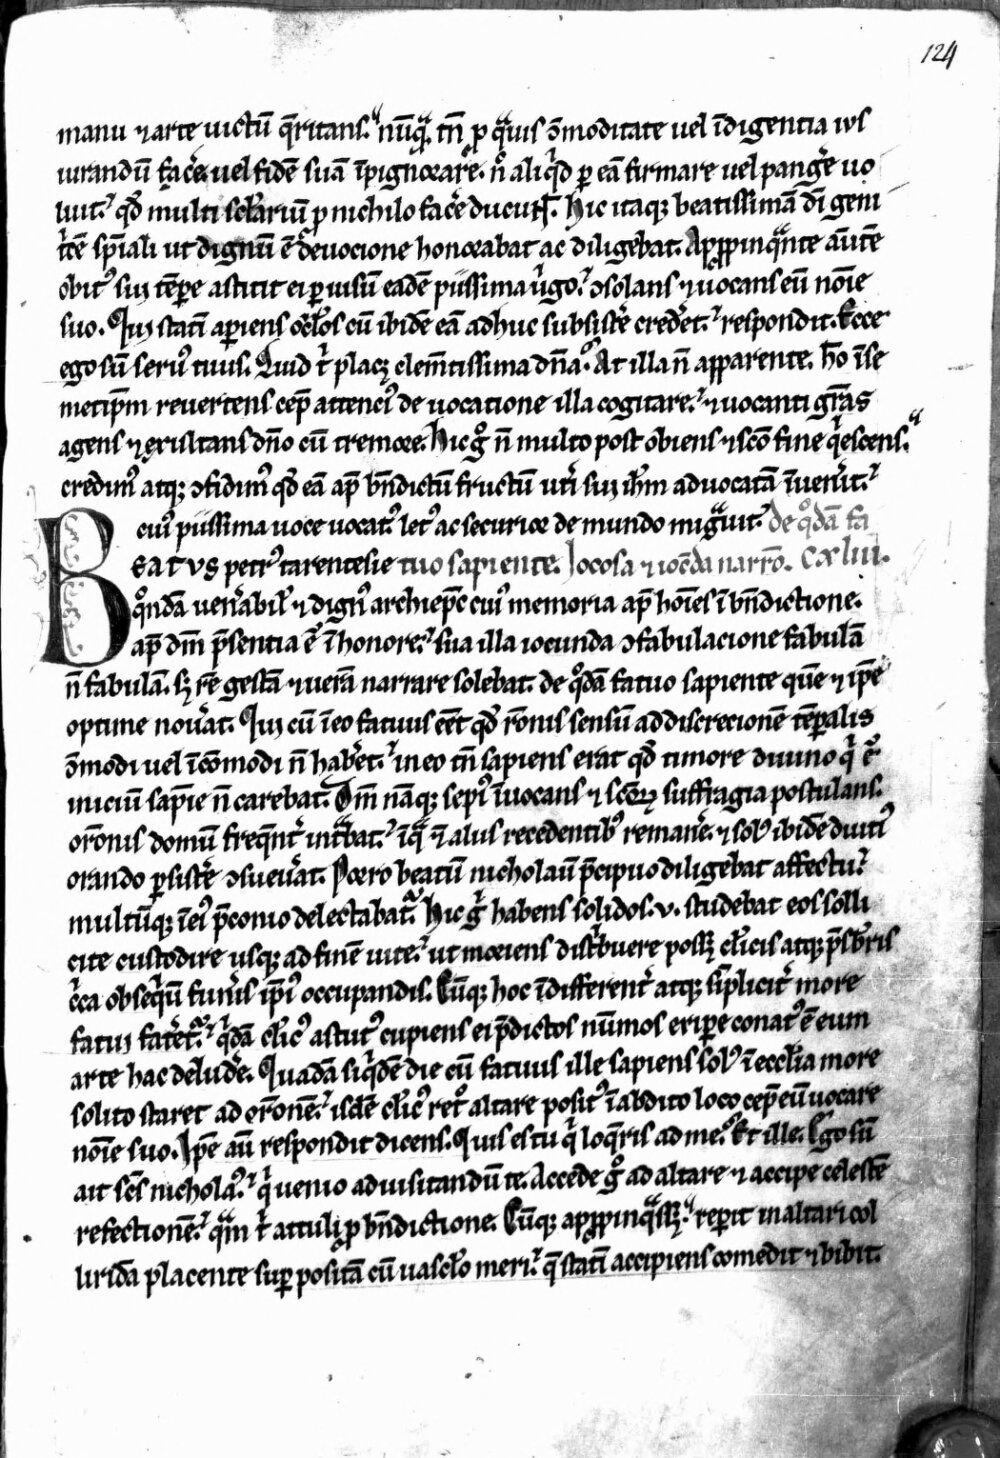 124
manu ⁊ arte uictū q̄ritans. nūq̄ꝫ tn̄ ꝓ qͣuis ↄ̄moditate uel īdigentia ius
iurandū fac̄e uel fidē suā īpignorare. ut̉ aliqͥd ꝑ eā firmare uel pang̓e uo
luit. qd̓ multi scl̓ariū ꝓ nichilo fac̓e ducūt. Hic itaqꝫ beatissimā dī geni
tͥcē sp̄iali ut dignū ē deuocione honorabat ac diligebat. Aꝓpinqͣnte aūtē
obitꝰ sui tēꝑe astitit ei ꝑ uisū eadē piissima uͥgo. ↄsolans ⁊ uocans eū noīe
suo. Qui statī aꝑiens ocl̓os cū ibidē eā adhuc subsist̓e cred̓et. respondit. Ecce
ego sū seruꝰ tuus. Quid tͥ placꝫ clem̄tissima dn̄a. At illa n̄ apparente. hō ī se
metip̄m reuertens cep̄ attenciꝰ de uocatione illa cogitare. ⁊ uocanti gr̄as
agens ⁊ exultans dn̄o cū tremore. Hic gͦ n̄ multo post obiens ⁊ scō fine qͥescens.
credimꝰ atqꝫ ↄfidimꝰ qd̓ eā ap̄ bn̄dictū fructū utͥ sui ih̄m aduocatā īuen̓it.
cuiꝰ piissima uoce uocatꝰ letꝰ ac securior de mundo migͣuit. de qͦdā fa
BEATVS petrꝰ tarentesie tuo sapiente. Jocosa ⁊ ioc̄da narrō. Cxliii.
qͦndā uen̓abil̓ ⁊ dignꝰ archiep̄c cuiꝰ memoria ap̄ hoīes ī bn̄dictione.
ap̄ dm̄ p̄sentia ē ī honore. sua illa iocunda ↄfabulacione fabulā
n̄ fabulā. sꝫ rē gestā ⁊ uerā narrare solebat. de qͦdā fatuo sapiente quē ⁊ ip̄e
optime nou̓at. Qui cū ī eo fatuus eēt qd̓ rōnis sensū ad discrecionē tēꝑalis
ↄ̄modi uel īcōmodi n̄ hab̓et. in eo tn̄ sapiens erat qd̓ timore diuino qͥ ē
iniciū sapīe n̄ carebat. Dm̄ nāqꝫ sepiꝰ īuocans ⁊ scōꝝ suffragia postulans.
orōnis domū freqn̄tͥ intͣbat. īqͣ ⁊ aliis recedentibꝰ reman̓e. ⁊ solꝰ ibidē diutiꝰ
orando ꝑsist̓e ↄsueu̓at. Porro beatū nicholaū p̄cipuo diligebat affectu.
multūqꝫ ī eiꝰ p̄conio delectabatͣ. Hic gͥ habens solidos .v. studebat eos solli
cite custodire usqꝫ ad finē uite. ut moriens distͥbuere possꝫ cl̓icis atqꝫ p̄sbr̄is
cͥca obseqͥū fun̓is ip̄iꝰ occupandis. Cūqꝫ hoc īdifferent̓ atqꝫ simplicit̓ more
fatui fat̓etͣ. qͥdā cl̓icꝰ astutꝰ cupiens ei p̄dictos nūmos eriꝑe conatꝰ ē eum
arte hac delud̓e. Quadā siqͥdē die cū fatuus ille sapiens solꝰ ī eccl̓ia more
solito staret ad orōnē. isdē cl̓icꝰ retͦ altare positꝰ ī abdito loco cep̄ eū uocare
noīe suo. Ip̄e aū respondit dicens. Quis es tu qͥ loq̄ris ad me. Et ille. Ego sū
ait scs̄ nicholaꝰ. qͥ uenio ad uisitandū te. Accede gͦ ad altare ⁊ accipe celestē
refectionē. qͣm tͥ attuli ꝓ bn̄dictione. Cūqꝫ aꝓpinqͣssꝫ. reꝑit in altari col
liridā placente suꝑ positā cū uascl̓o meri. q̄ statī accipiens comedit ⁊ bibit.